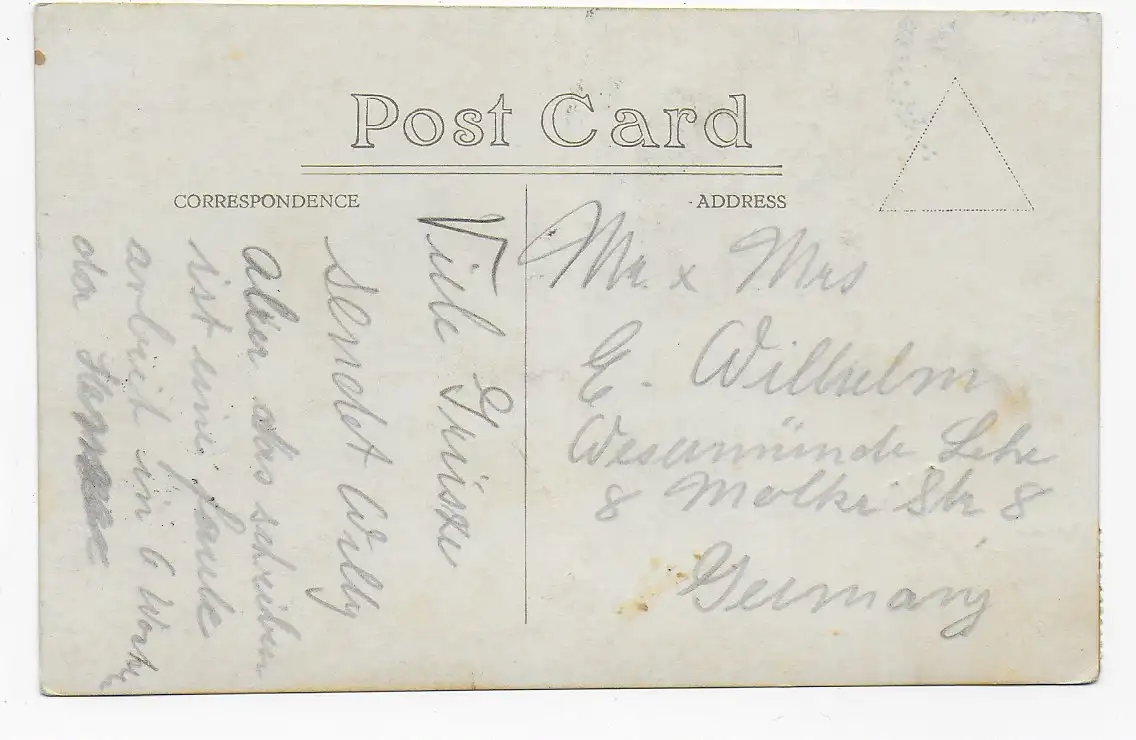 Post Card
CORRESPONDENCE
ADDRESS
Viele Grüsze
sendet Willy
aber das schreiben
ist eine faule
arbeit in 6 Woch
da
Mr. x Mrs
E. Wilhelm
Wesermünde Lehe
8 Moltke Str 8
Germany